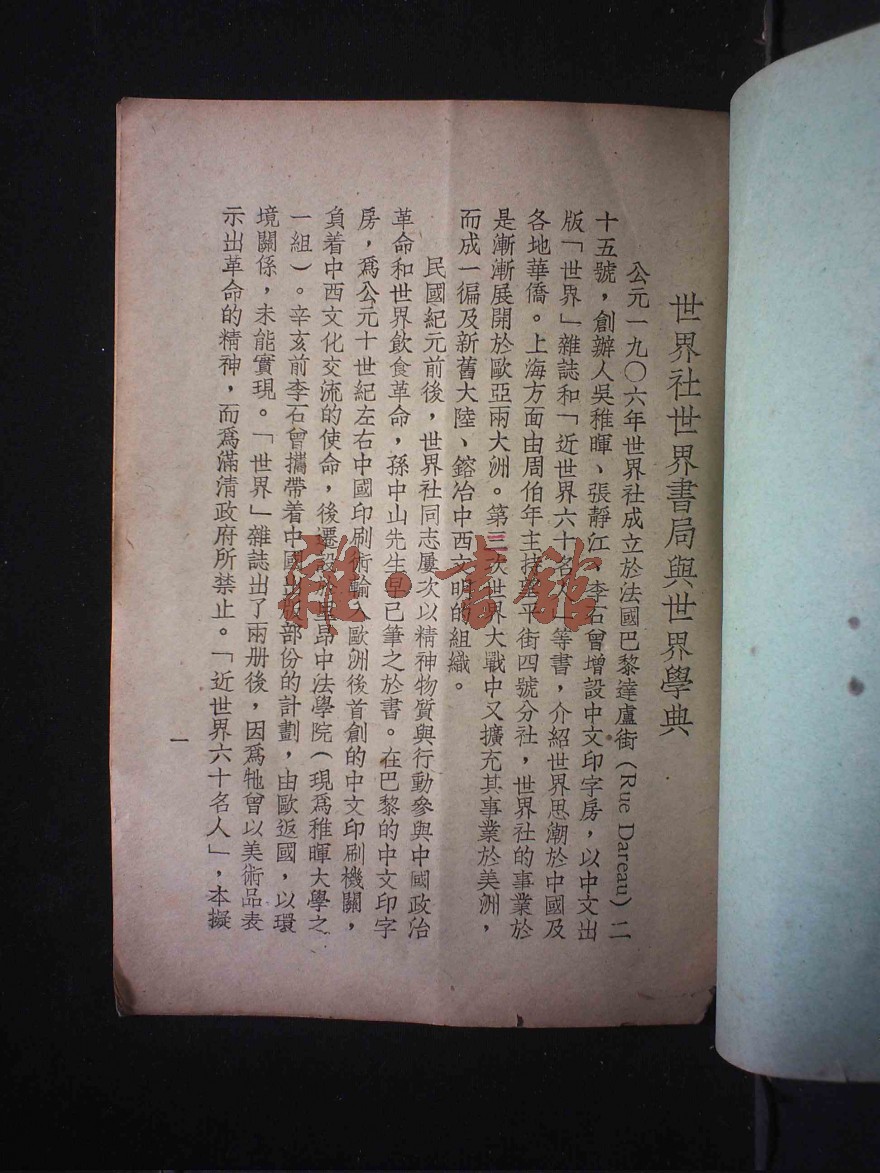 世界社世界書局與世界學典
公元一九〇六年世界社成立於法國巴黎達盧街(Rue Dareau)二
十五號，創辦人吳稚暉、張靜江、李石曾增設中文印字房，以中文出
版「世界」雜誌和「近世界六十名人」等書，介紹世界思潮於中國及
各地華僑。上海方面由周伯年主持 平街四號分社，世界社的事業於
是漸漸展開於歐亞兩大洲。第 次世界大戰中又擴充其事業於美洲，
而成一徧及新舊大陸、鎔冶中西文明的組織。
民國紀元前後，世界社同志屢次以精神物質與行動參與中國政治
革命和世界飲食革命，孫中山先生早已筆之於書。在巴黎的中文印字
房，爲公元十世紀左右中國印刷術輸入歐洲後首創的中文印刷機關，
負着中西文化交流的使命，後遷設於里昂中法學院（現爲稚暉大學之
一組）。辛亥前李石曾攜帶着中國出版部份的計劃，由歐返國，以環
境關係，未能實現。「世界」雜誌出了兩册後，因爲牠曾以美術品表
示出革命的精神，而爲滿清政府所禁止。「近世界六十名人」，本擬
一
雜·書館